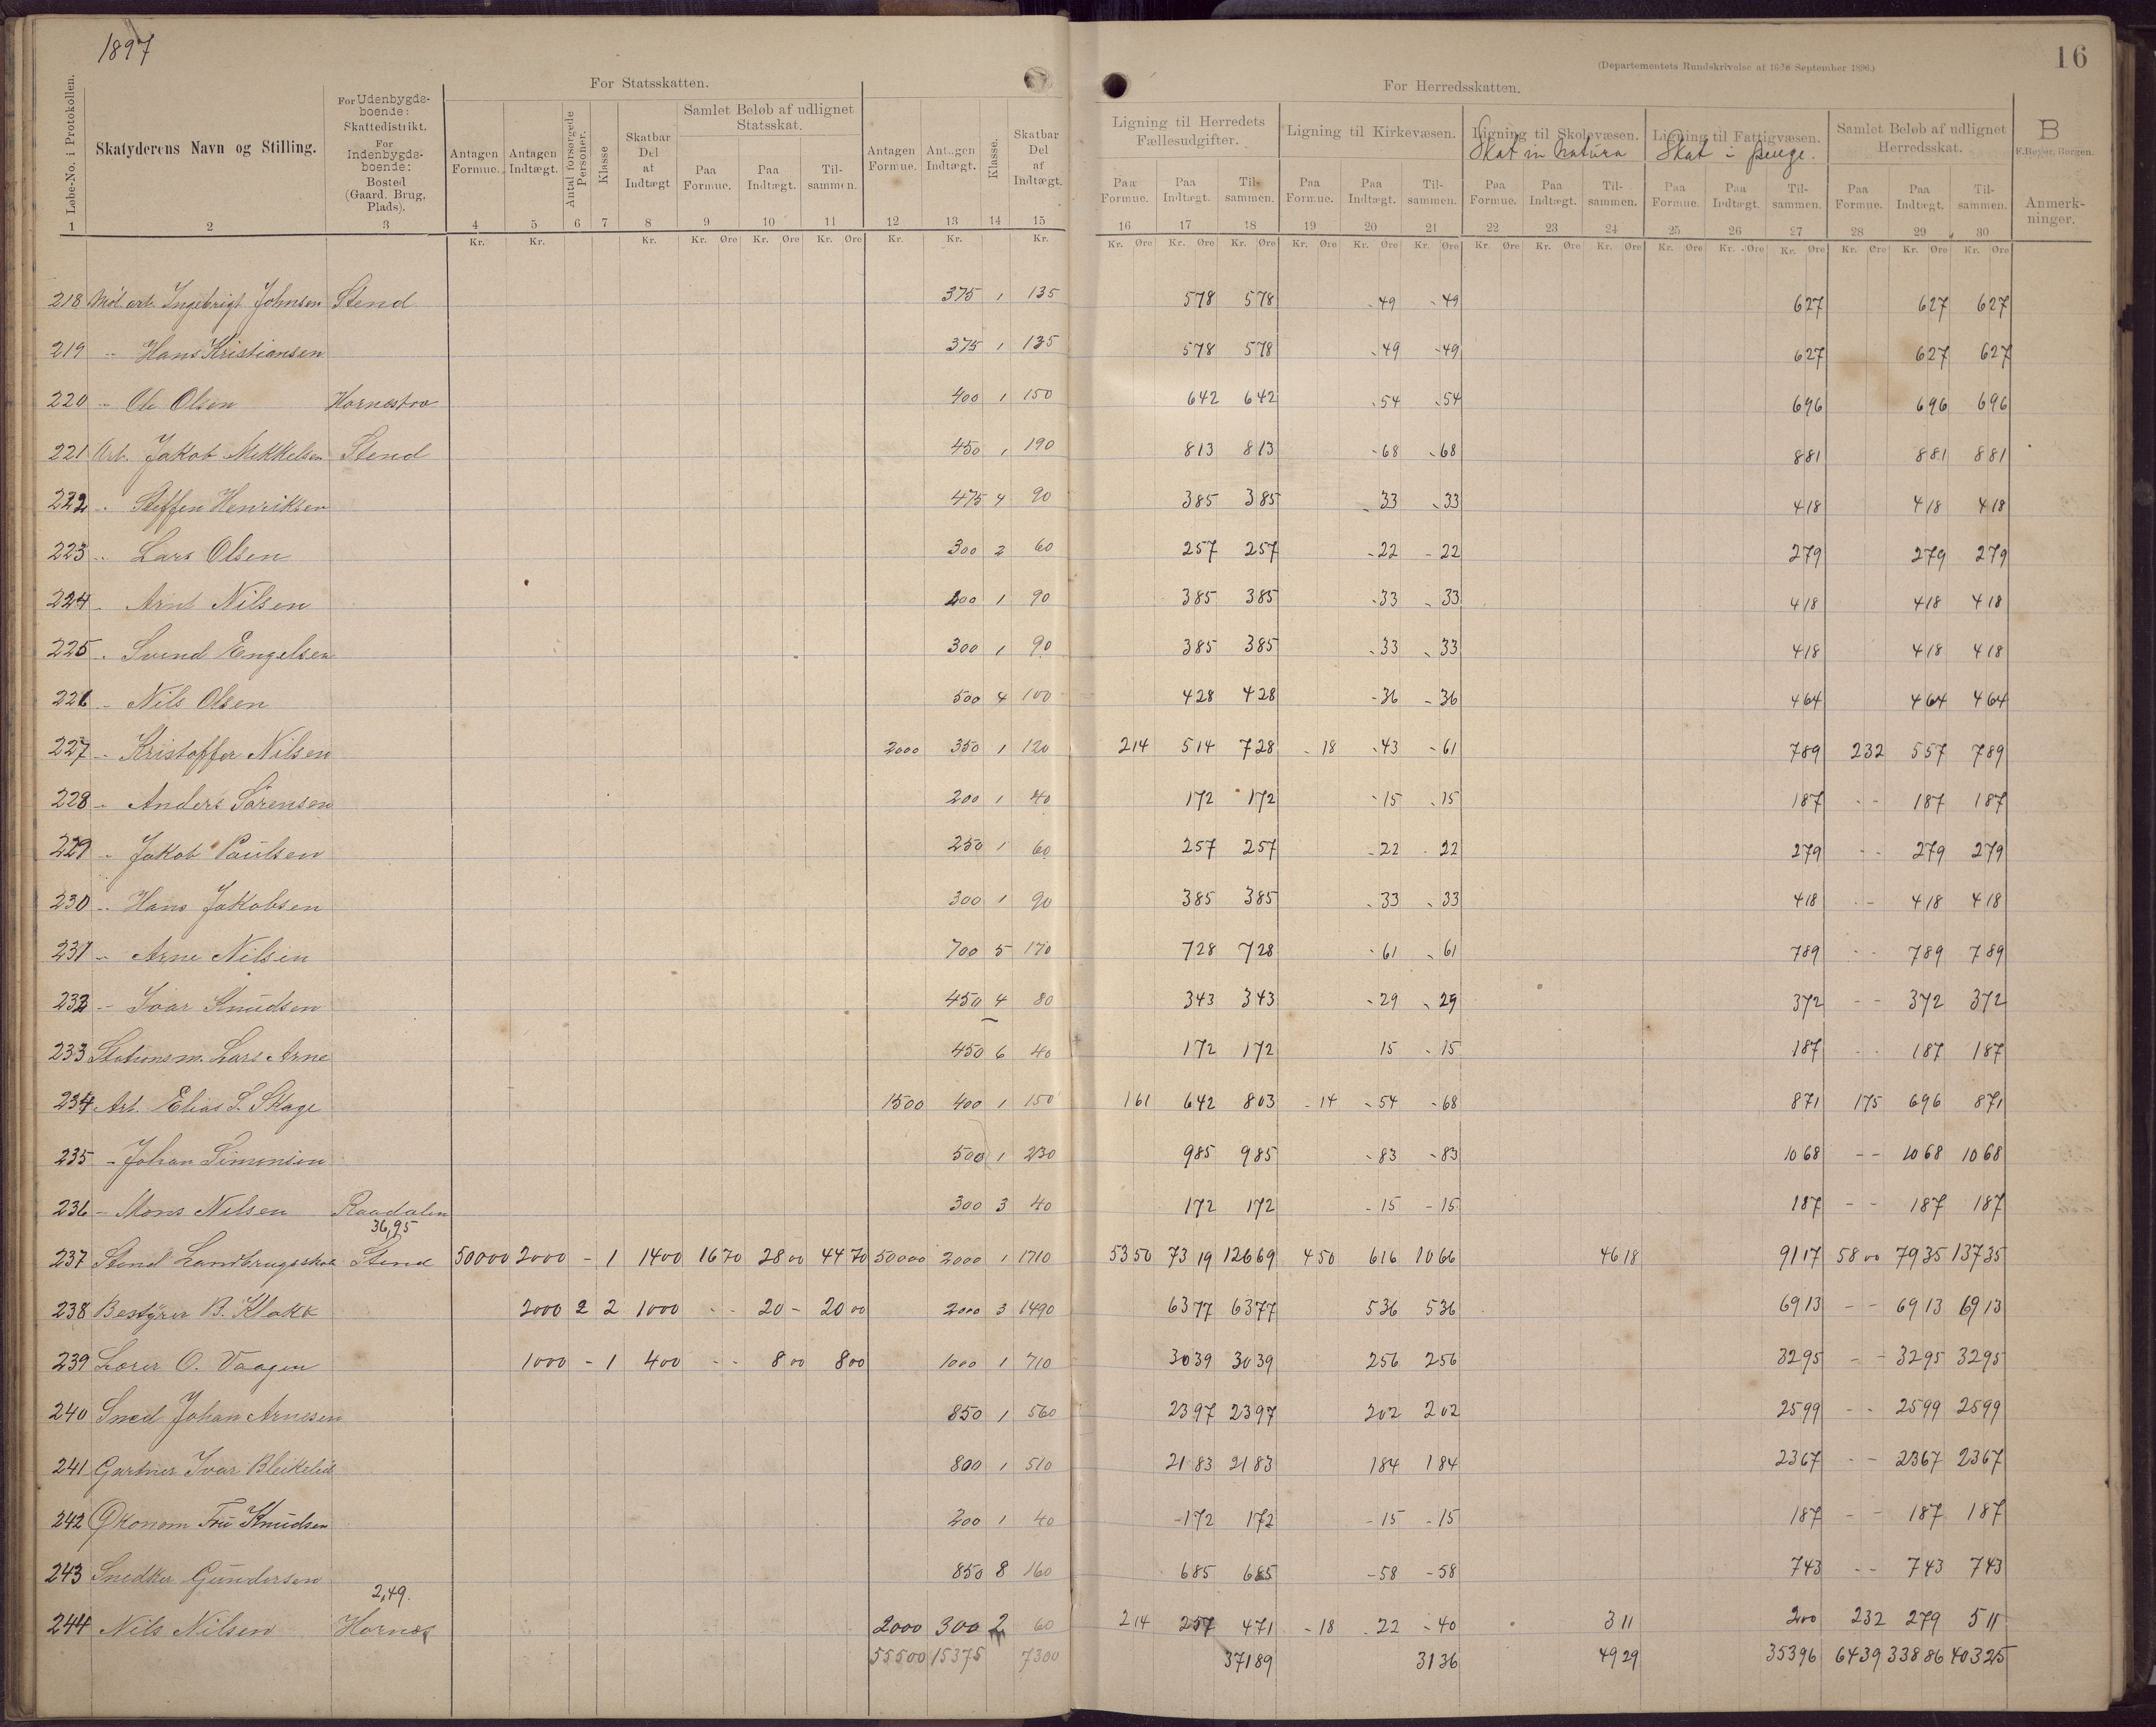 1897
16
(Departementets Rundskrivelse af 16de September 1896.)
For Statsskatten.
For Herredsskatten.
Løbe-No. i Protokollen.
Skatyderens Navn og Stilling.
For Udenbygdsboende: Skattedistrikt. For Indenbygdsboende: Bosted (Gaard, Brug, Plads).
Antagen Formue.
Antagen Indtægt.
Antal forsørgede Personer.
Klasse
Skatbar Del at Indtægt
Samlet Beløb af udlignet Statsskat.
Paa Formue. Paa Indtægt. Tilsammen.
Antagen Formue.
Antagen Indtægt.
Klasse.
Skatbar Del af Indtægt.
Ligning til Herredets Fællesudgifter.
Paa Formue. Paa Indtægt. Tilsammen.
Ligning til Kirkevæsen.
Paa Formue. Paa Indtægt. Tilsammen.
Ligning til Skolevæsen.
Skat in natura
Paa Formue. Paa Indtægt. Tilsammen.
Ligning til Fattigvæsen.
Skat i penge.
Paa Formue. Paa Indtægt. Tilsammen.
Samlet Beløb af udlignet Herredsskat.
Paa Formue. Paa Indtægt. Tilsammen.
B
F. Beyer, Bergen.
Anmerkninger.
1 2 3 4 5 6 7 8 9 10 11 12 13 14 15 16 17 18 19 20 21 22 23 24 25 26 27 28 29 30
Kr. Kr. Kr. Kr. Øre Kr. Øre Kr. Øre Kr. Kr. Kr. Kr. Øre Kr. Øre Kr. Øre Kr. Øre Kr. Øre Kr. Øre Kr. Øre Kr. Øre Kr. Øre Kr. Øre Kr. Øre Kr. Øre Kr. Øre Kr. Øre Kr. Øre
218 Møl arb. Ingebrigt Johnsen Stend 375 1 135 578 578 - 49 - 49 627 627 627
219 " Hans Kristiansen 375 1 135 578 578 - 49 - 49 627 627 627
220 " Ole Olsen Hornestvo 400 1 150 642 642 - 54 - 54 696 696 696
221 Arb. Jakob Mikkelsen Stend 450 1 190 813 813 - 68 - 68 881 881 881
222 " Steffen Henriksen 475 4 90 385 385 - 33 - 33 418 418 418
223 " Lars Olsen 300 2 60 257 257 - 22 - 22 279 279 279
224 " Arnt Nilsen 200 1 90 385 385 - 33 - 33 418 418 418
225 " Svend Engelsen 300 1 90 385 385 - 33 - 33 418 418 418
226 " Nils Olsen 500 4 100 428 428 - 36 - 36 464 464 464
227 " Kristoffer Nilsen 2000 350 1 120 214 514 728 - 18 - 43 - 61 789 232 557 789
228 " Anders Sørensen 200 1 40 172 172 - 15 - 15 187 - - 187 187
229 " Jakob Paulsen 250 1 60 257 257 - 22 - 22 279 - - 279 279
230 " Hans Jakobsen 300 1 90 385 385 - 33 - 33 418 - - 418 418
231 " Arne Nilsen 700 5 170 728 728 - 61 - 61 789 - - 789 789
232 " Ivar Knudsen 450 4 80 343 343 - 29 - 29 372 - - 372 372
233 Stationsm. Lars Arne 450 6 40 172 172 15 - 15 187 - - 187 187
234 Arb. Elias L. Skage 1500 400 1 150 161 642 803 - 14 - 54 - 68 871 175 696 871
235 - Johan Simonsen 500 1 230 985 985 - 83 - 83 1068 - - 1068 1068
236 - Mons Nilsen Raadalen 300 3 40 172 172 - 15 - 15 187 - - 187 187
36,95
237 Stend Landbrugsskole Stend 50000 2000 - 1 1400 1670 2800 4470 50000 2000 1 1710 5350 7319 12669 450 616 1066 4618 9117 5800 7935 13735
238 Bestyrer B. Klokk 2000 2 2 1000 - - 20 - 2000 2000 3 1490 6377 6377 536 536 6913 - - 6913 6913
239 Lærer O. Vaagen 1000 - 1 400 - - 800 800 1000 1 710 3039 3039 256 256 3295 - - 3295 3295
240 Sned Johan Arnesen 850 1 560 2397 2397 202 202 2599 - - 2599 2599
241 Gartner Ivar Bleikelid 800 1 510 2183 2183 184 184 2367 - - 2367 2367
242 Økonom Fru Knudsen 200 1 40 -172 172 - 15 - 15 187 - - 187 187
243 Snedker Gundersen 850 8 160 685 685 - 58 - 58 743 - - 743 743
2,49.
244 Nils Nilsen Hornes 2000 300 2 60 214 257 471 - 18 22 - 40 311 200 232 279 511
55500 15375 7300 37189 3136 4929 35396 6439 33886 40325